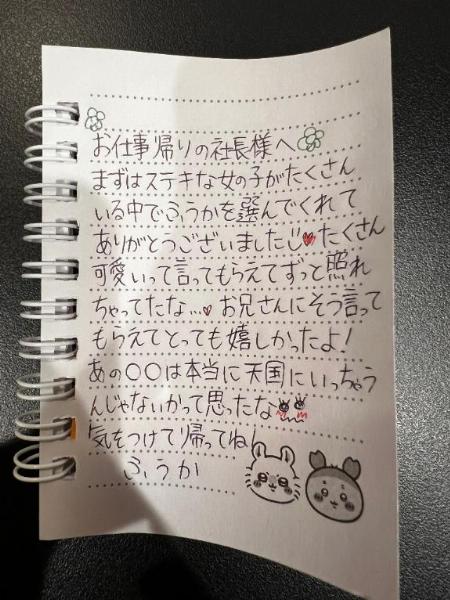 お仕事帰りの社長様へ
まずはステキな女の子がたくさん
いる中でふうかを選んでくれて
ありがとうございました♥たくさん
可愛いって言ってもらえてずっと照れ
ちゃってたな…♥お兄さんにそう言って
もらえてとっても嬉しかったよ!
あの〇〇は本当に天国にいっちゃう
んじゃないかって思ったな
気をつけて帰ってね!
ふうか